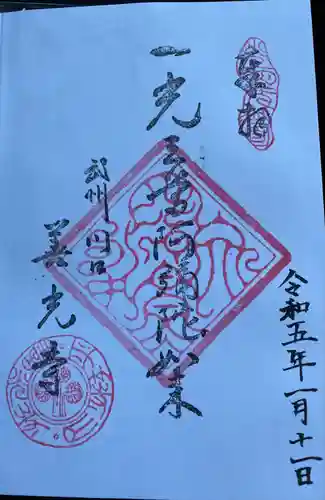 奉拝
一光三尊阿彌陀如来
武州川口
善光寺
令和五年一月十一日